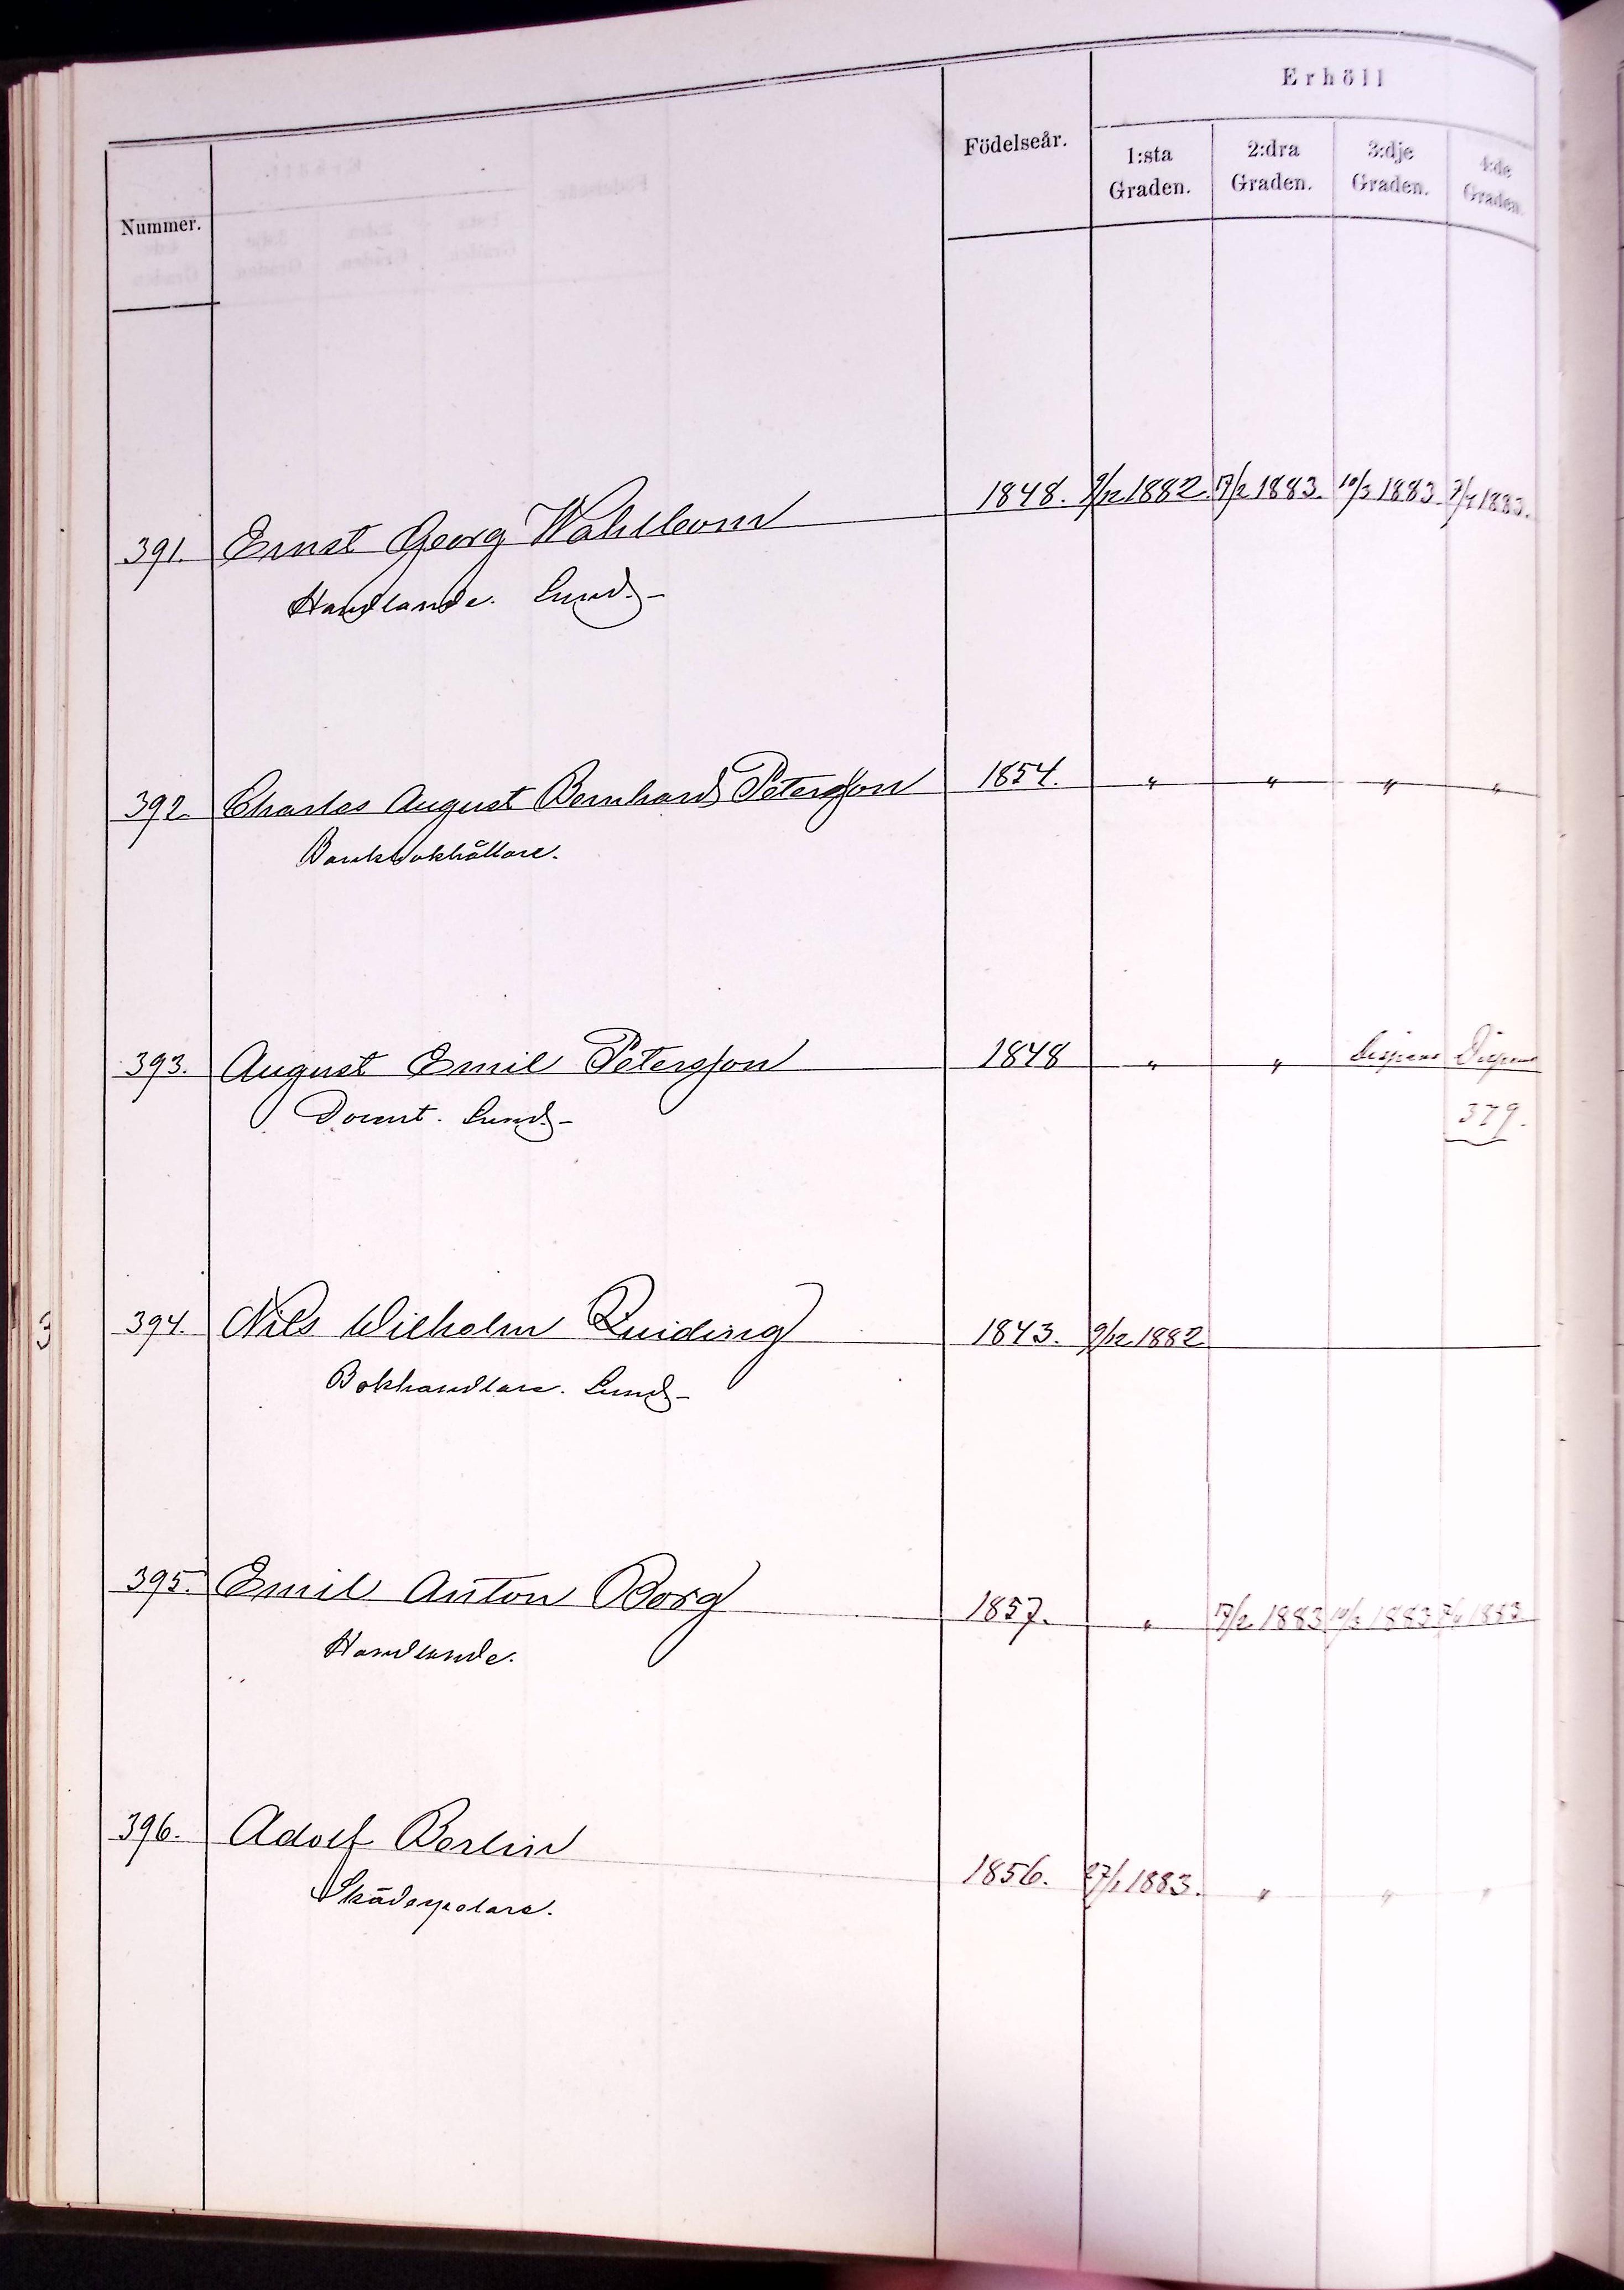 Erhöll
Nummer. Födelseår. 1:sta Graden. 2:dra Graden. 3:dje Graden. 4:de Graden.
391. Ernst Georg Wahlbom 1848. 9/12 1882. 17/2 1883. 10/3 1883 7/4 1883.
Handlande. Lund.
392. Charles August Bernhard Petersson 1854. " " " "
Bankbokhållare.
393. August Emil Petersson 1848 " " Dispens Dispens
Docent. Lund. 379.
3 394. Nils Wilhelm Quiding 1843. 9/12 1882
Bokhandlare. Lund
395. Emil Anton Borg 1857. " 17/2 1883 10/3 1883 7/4 1883
Handlande.
396. Adolf Berlin 1856. 27/1 1883. " " "
Skådespelare.